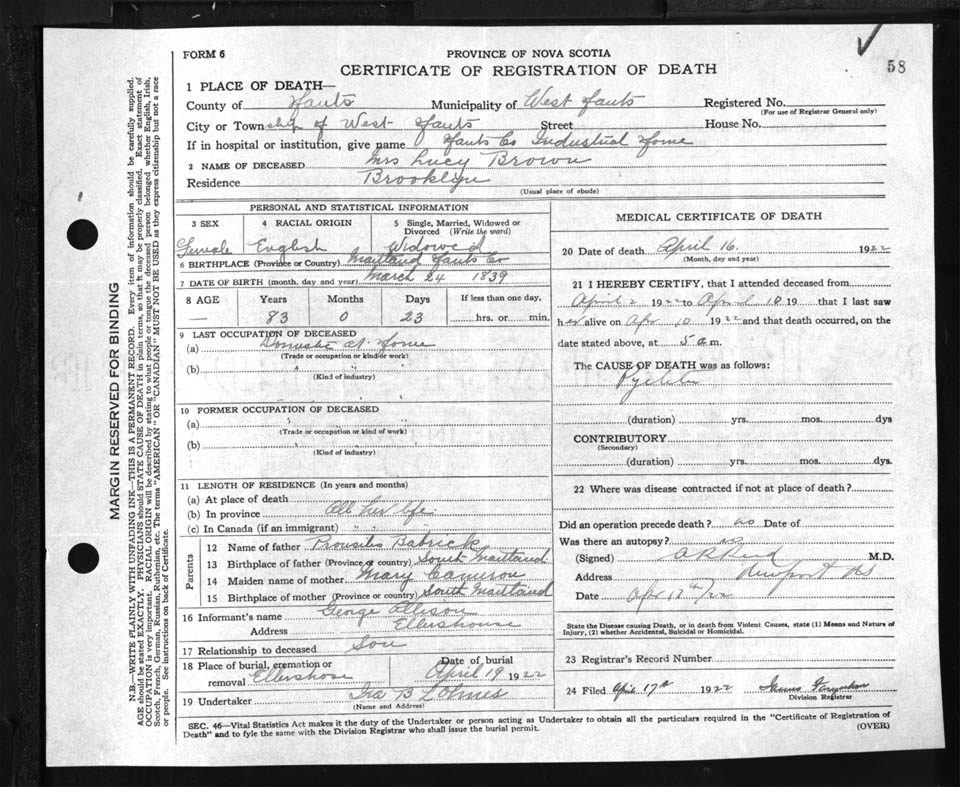 58
FORM 6
PROVINCE OF NOVA SCOTIA
CERTIFICATE OF REGISTRATION OF DEATH
1 PLACE OF DEATH—
County of Hants Municipality of West Hants Registered No.
(For use of Registrar General only)
City or Township of West Hants Street House No.
If in hospital or institution, give name Hants Co Industrial Home
2 NAME OF DECEASED Mrs Lucy Brown
Residence Brooklyn
(Usual place of abode)
PERSONAL AND STATISTICAL INFORMATION
3 SEX 4 RACIAL ORIGIN 5 Single, Married, Widowed or Divorced (Write the word)
Female English Widowed
6 BIRTHPLACE (Province or Country) Maitland Hants Co
7 DATE OF BIRTH (month, day and year) March 24 1839
8 AGE Years Months Days If less than one day,
— 83 0 23 hrs. or min.
9 LAST OCCUPATION OF DECEASED
(a) Domestic at Home
(Trade or occupation or kind of work)
(b)
(Kind of industry)
10 FORMER OCCUPATION OF DECEASED
(a)
(Trade or occupation or kind of work)
(b)
(Kind of industry)
11 LENGTH OF RESIDENCE (In years and months)
(a) At place of death
(b) In province All her life
(c) In Canada (if an immigrant) " "
Parents
12 Name of father
13 Birthplace of father (Province or country) South Maitland
14 Maiden name of mother Mary Cameron
15 Birthplace of mother (Province or country) South Maitland
16 Informant's name George Allison
Address Ellershouse
17 Relationship to deceased Son
18 Place of burial, cremation or removal Ellershose Date of burial April 19 1922
19 Undertaker Ira B Lohnes
(Name and Address)
MEDICAL CERTIFICATE OF DEATH
20 Date of death April 16. 1922
(Month, day and year)
21 I HEREBY CERTIFY, that I attended deceased from
April 2 1922 to April 10 19 that I last saw
her alive on Apr 10 1922 and that death occurred, on the
date stated above, at 5 a m.
The CAUSE OF DEATH was as follows:
(duration) yrs. mos. dys
CONTRIBUTORY
(Secondary)
(duration) yrs. mos. dys.
22 Where was disease contracted if not at place of death?
Did an operation precede death? no Date of
Was there an autopsy? no
(Signed) M.D.
Address Newport NS
Date
State the Disease causing Death, or in death from Violent Causes, state (1) Means and Nature of
Injury, (2) whether Accidental, Suicidal or Homicidal.
23 Registrar's Record Number
24 Filed April 17th 1922
Division Registrar
SEC. 46—Vital Statistics Act makes it the duty of the Undertaker or person acting as Undertaker to obtain all the particulars required in the "Certificate of Registration of
Death" and to fyle the same with the Division Registrar who shall issue the burial permit. (OVER)
MARGIN RESERVED FOR BINDING
N.B.—WRITE PLAINLY WITH UNFADING INK—THIS IS A PERMANENT RECORD. Every item of information should be carefully supplied.
AGE should be stated EXACTLY. PHYSICIANS should STATE CAUSE OF DEATH in plain terms, so that it may be properly classified. Exact statement of
OCCUPATION is very important. RACIAL ORIGIN will be described by stating to what people or tongue the deceased person belonged whether English, Irish,
Scotch, French, German, Russian, Ruthenian, etc. The terms "AMERICAN" OR "CANADIAN" MUST NOT BE USED as they express citizenship but not a race
or people. See instructions on back of Certificate.